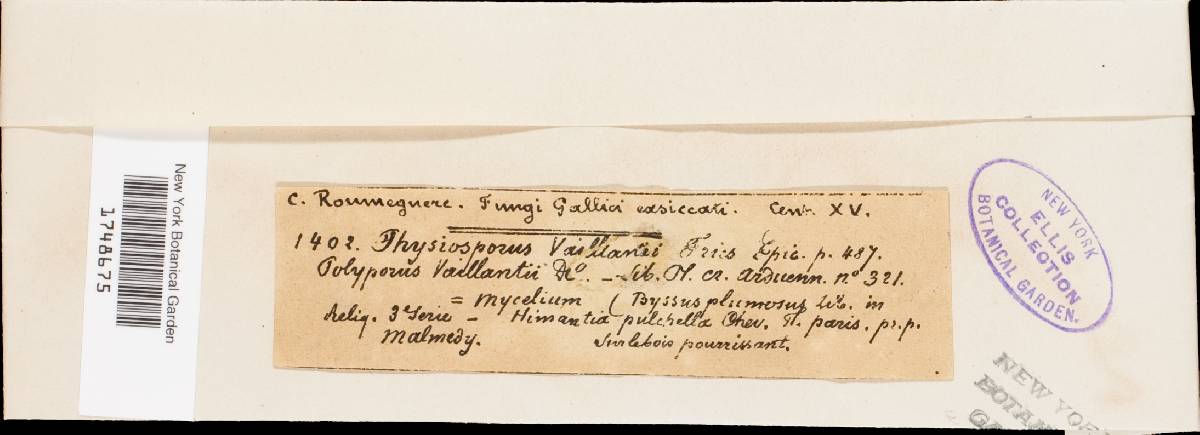 C. Roumeguere. Fungi Gallici exsiccati. Cent. XV.
1402. Physiosporus Vaillantii Fries Epic. p. 487.
Polyporus Vaillantii DC. – Lib. Pl. cr. Arduenn. n° 321.
= Mycelium (Byssus plumosus Lib. in
Reliq. 3e Serie – Himantia pulchella Chev. Fl. paris. pr. p.
Malmedy. Sur le bois pourrissant.
New York Botanical Garden
1748675
NEW YORK
ELLIS
COLLECTION
BOTANICAL GARDEN.
NEW YORK